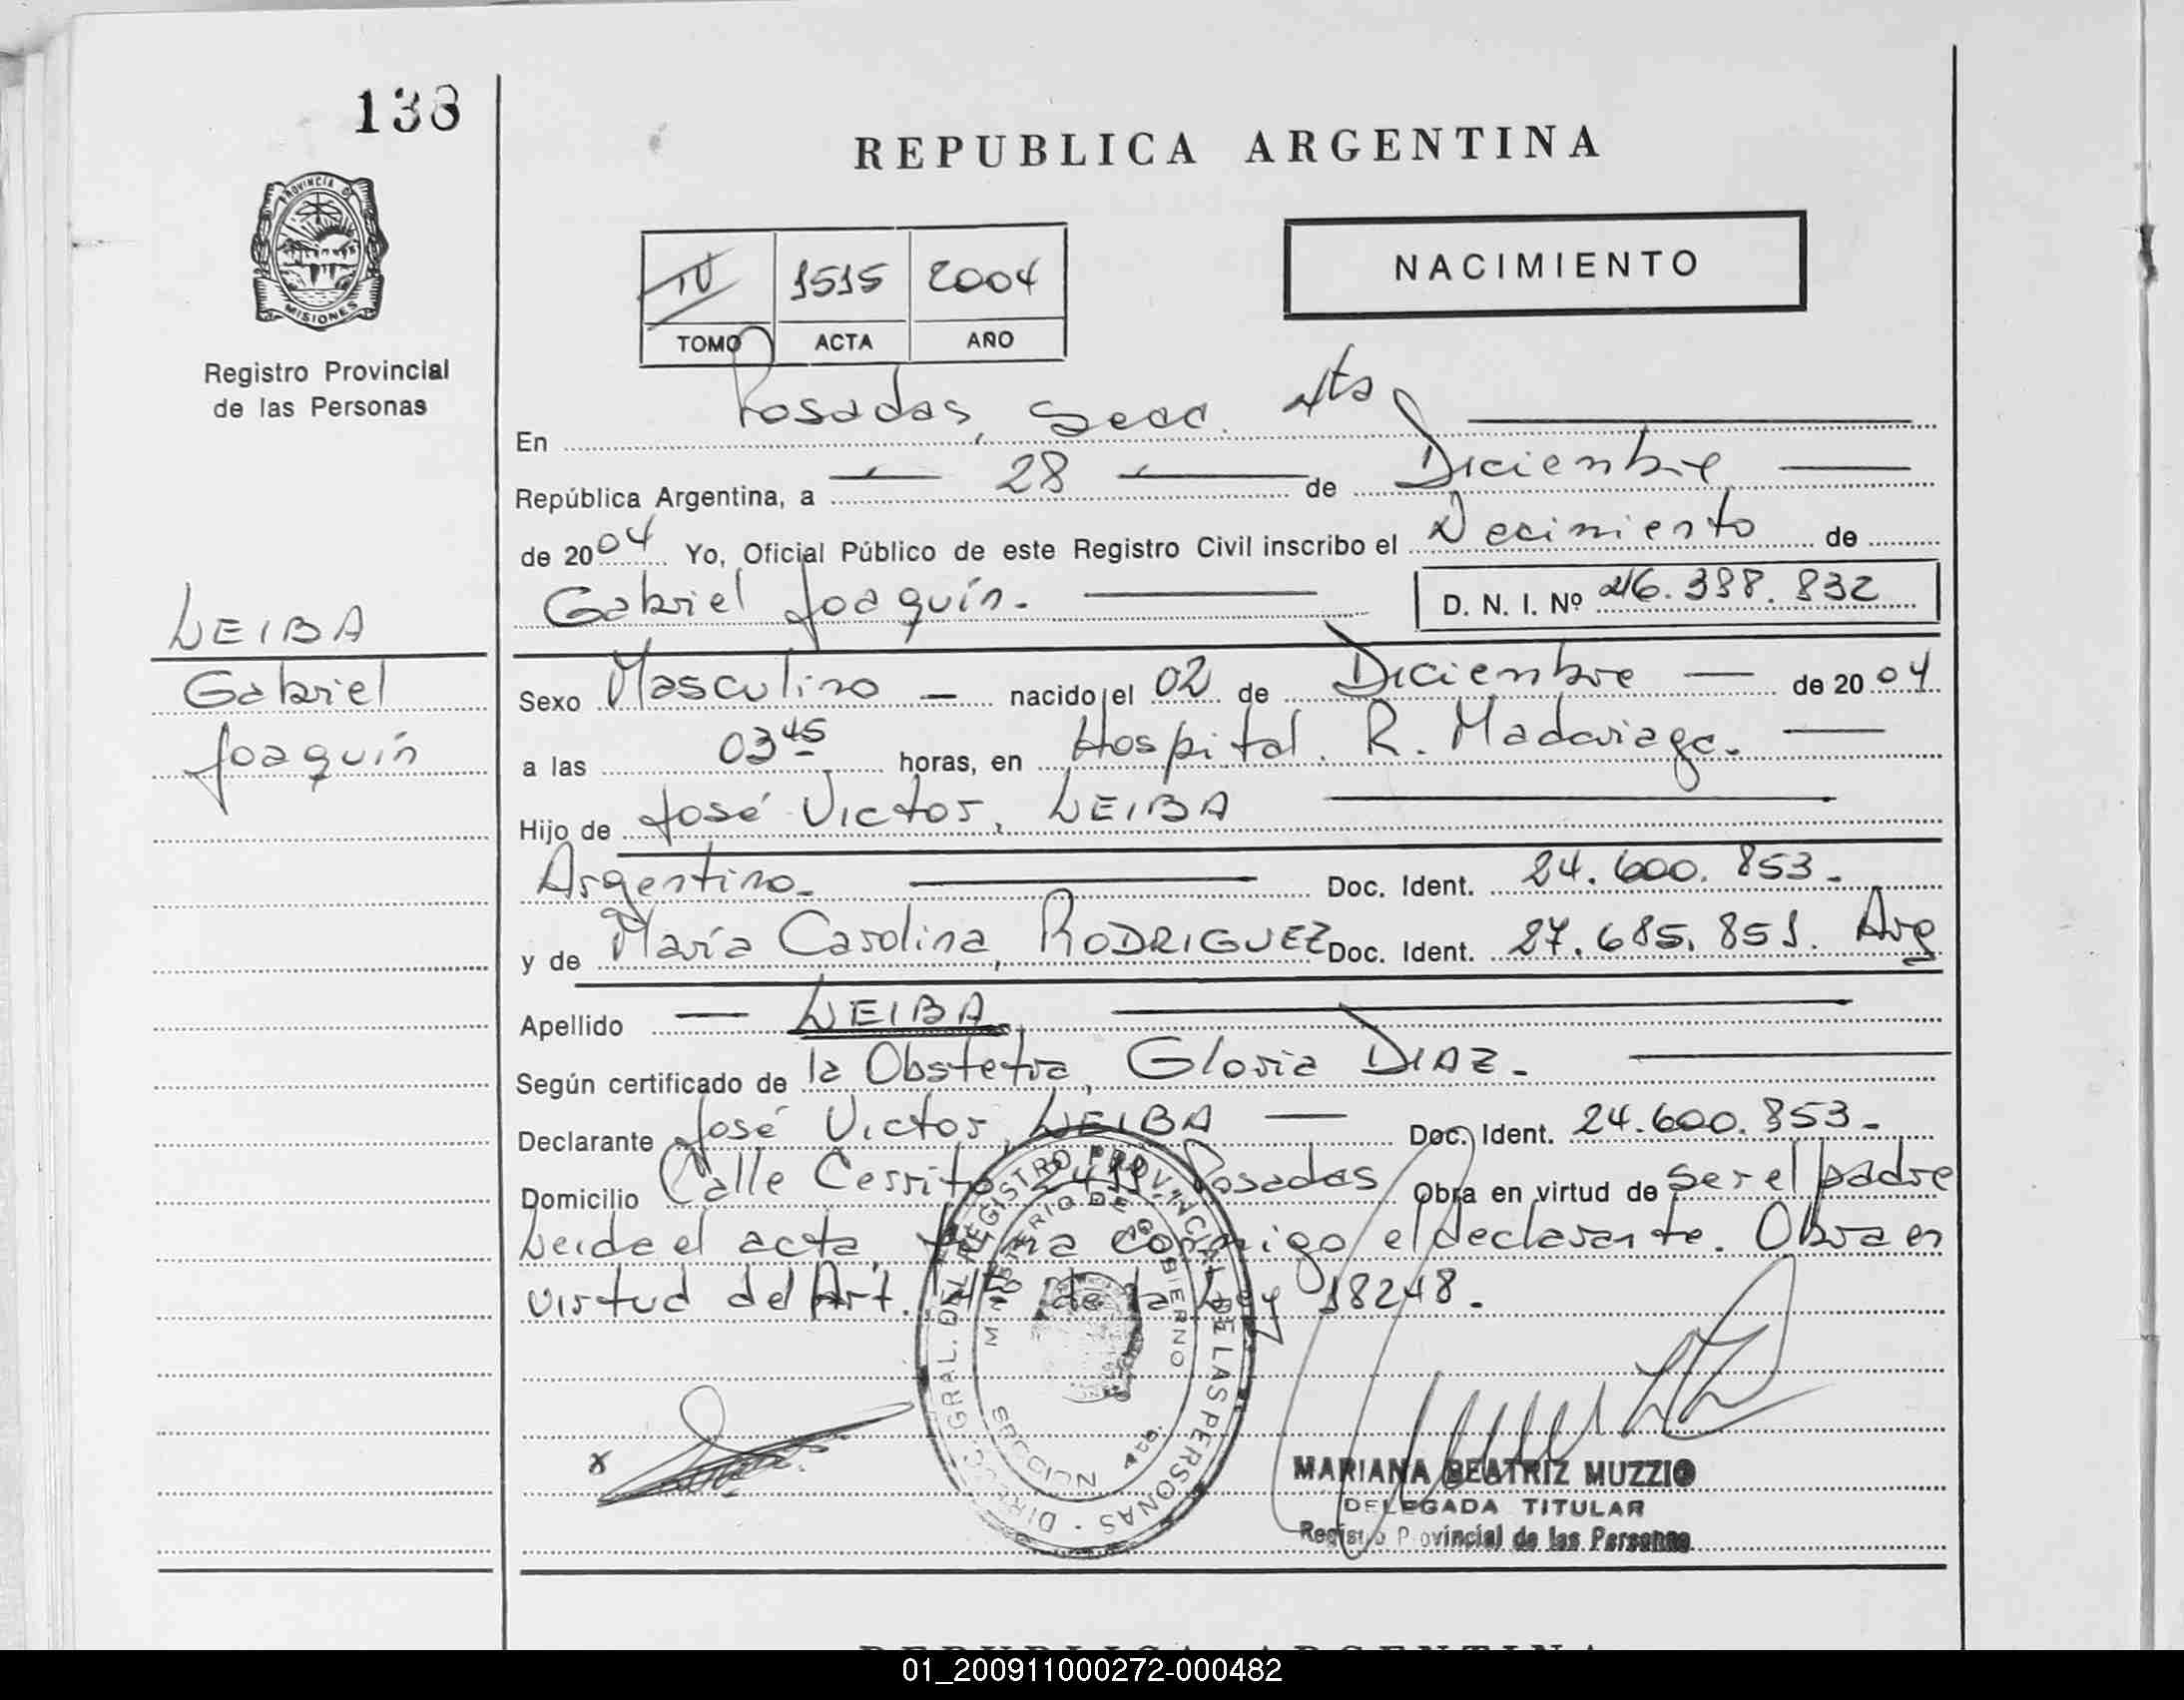 138
REPUBLICA ARGENTINA
PROVINCIA DE
MISIONES
Registro Provincial
de las Personas
NACIMIENTO
IV 1515 2004
TOMO ACTA AÑO
En Posadas, Secc. 4ta
República Argentina, a 28 de Diciembre
de 2004 Yo, Oficial Público de este Registro Civil inscribo el Nacimiento de
Gabriel Joaquín. D. N. I. Nº 46.388.832
LEIBA
Gabriel
Joaquín
Sexo Masculino nacido el 02 de Diciembre de 2004
a las 03 45 horas, en Hospital. R. Madariaga.
Hijo de José Victor, LEIBA
Argentino. Doc. Ident. 24.600.853.
y de María Carolina, RODRIGUEZ Doc. Ident. 27.685.851. Arg
Apellido LEIBA
Según certificado de la Obstetra, Gloria DIAZ.
Declarante José Victor, LEIBA Doc. Ident. 24.600.853.
Domicilio Calle Cerrito Posadas Obra en virtud de ser el padre
Leida el acta, firma conmigo el declarante. Obra en
virtud del Art. 4to de la Ley 18248.
DIRECC. GRAL. DEL REGISTRO PROVINCIAL DE LAS PERSONAS
MINISTERIO DE GOBIERNO
4ta.
x
MARIANA BEATRIZ MUZZIO
DELEGADA TITULAR
Registro Provincial de las Personas
REPUBLICA ARGENTINA
01_200911000272-000482